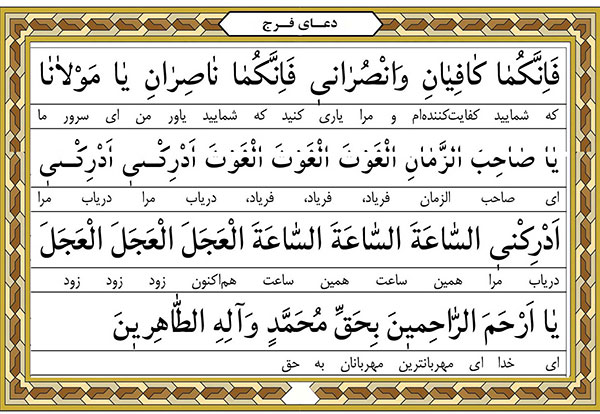 دعـای فـرج
فَاِنَّکُمٰا کٰافِیٰانِ وَانْصُرٰانی فَاِنَّکُمٰا نٰاصِرٰانِ یٰا مَوْلاٰنٰا
که شمایید کفایت‌کننده‌ام و مرا یاری کنید که شمایید یاور من ای سرور ما
یٰا صٰاحِبَ الزَّمٰانِ الْغَوْثَ الْغَوْثَ الْغَوْثَ اَدْرِکْـنی اَدْرِکْـنی
ای صاحب الزمان فریاد، فریاد، فریاد، دریاب مرا دریاب مرا
اَدْرِکْنی السّٰاعَةَ السّٰاعَةَ السّٰاعَةَ الْعَجَلَ الْعَجَلَ الْعَجَلَ
دریاب مرا همین ساعت همین ساعت هم‌اکنون زود زود زود
یٰا اَرْحَمَ الرّٰاحِمینَ بِحَقِّ مُحَمَّدٍ وَآلِهِ الطّٰاهِرینَ
ای خدا ای مهربانترین مهربانان به حق